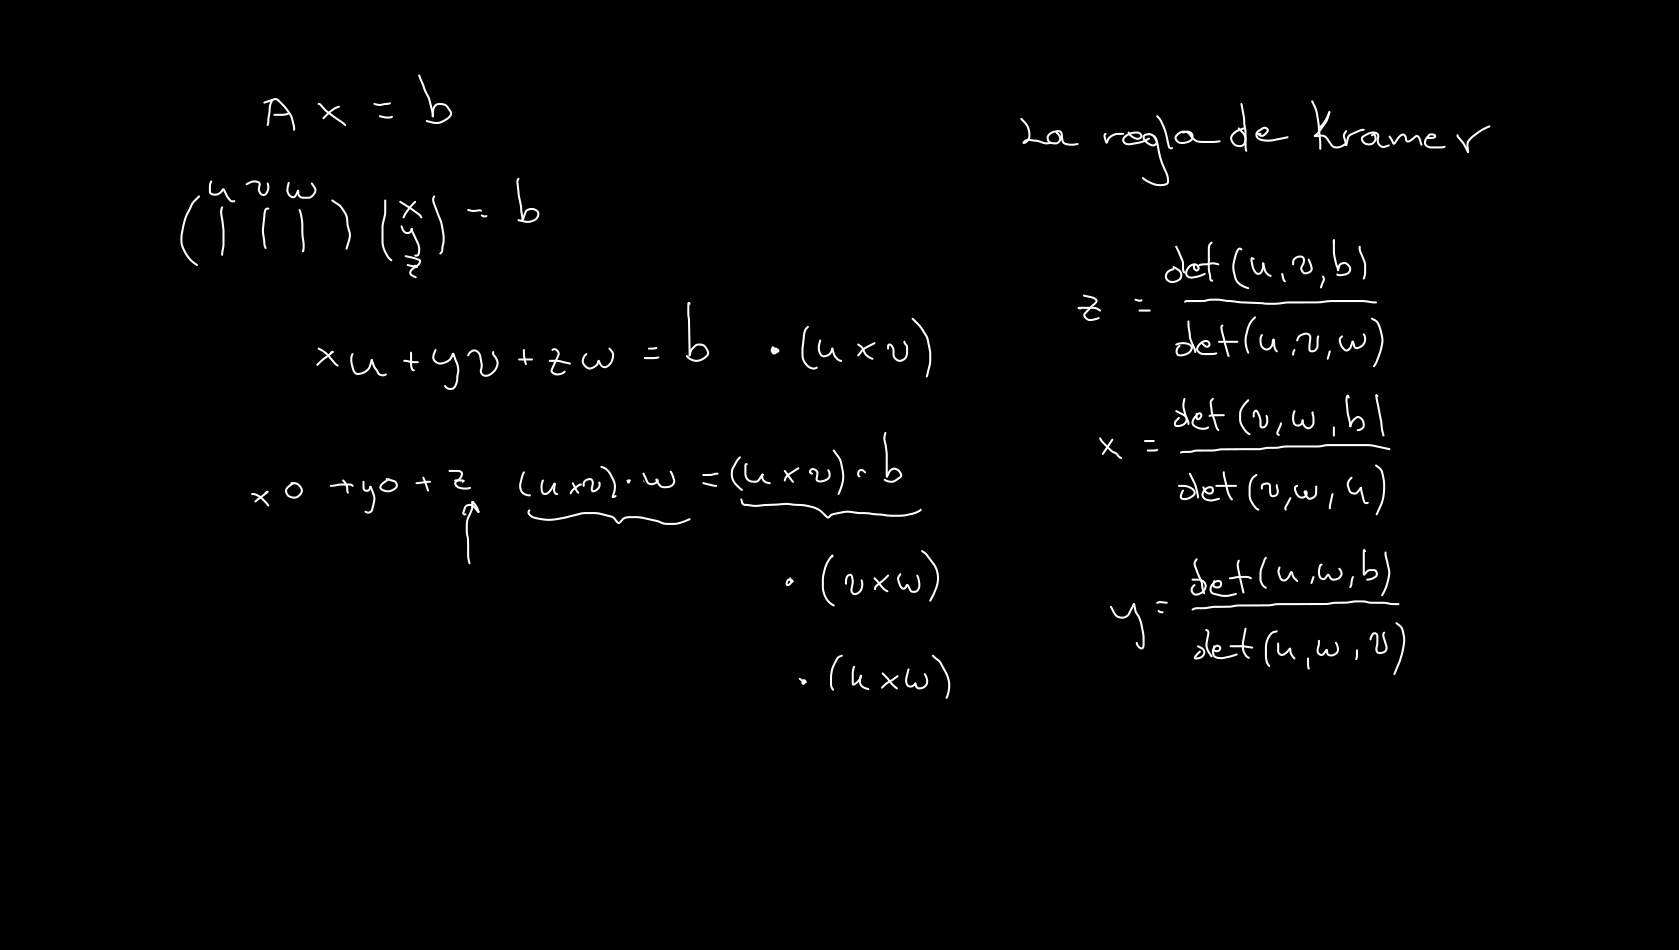 A x = b
u v w
( | | | ) (x y z) = b
x u + y v + z w = b · (u × v)
x 0 + y 0 + z (u × v) · w = (u × v) · b
· (v × w)
· (u × w)
La regla de Kramer
z = det(u, v, b) / det(u, v, w)
x = det(v, w, b) / det(v, w, u)
y = det(u, w, b) / det(u, w, v)